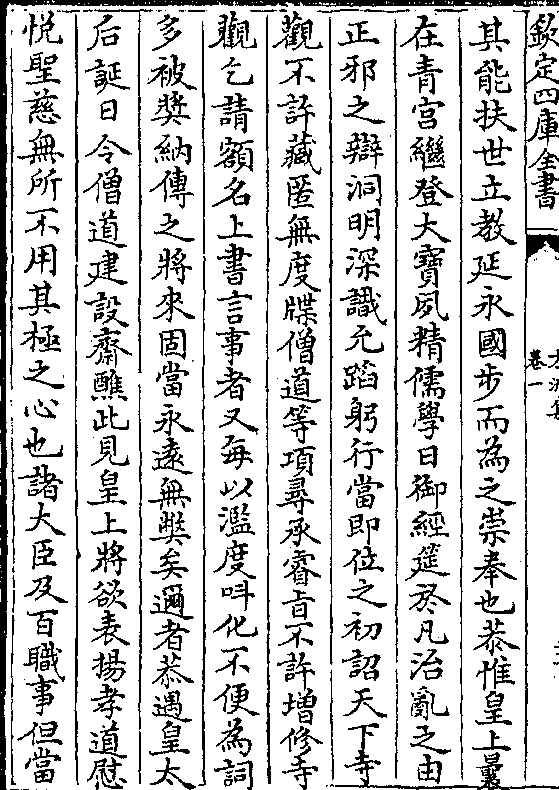 欽定四庫全書
卷一
其能扶世立教延永國步而為之崇奉也恭惟皇上曩
在青宮繼登大寶夙精儒學日御經筵於凡治亂之由
正邪之辯洞明深識允蹈躬行當即位之初詔天下寺
觀不許藏匿無度牒僧道等項尋承睿旨不許增修寺
觀乞請額名上書言事者又每以濫度呌化不便為詞
多被奬納傳之將來固當永遠無弊矣邇者恭遇皇太
后誕日令僧道建設齋醮此見皇上將欲表揚孝道慰
悅聖慈無所不用其極之心也諸大臣及百職事但當